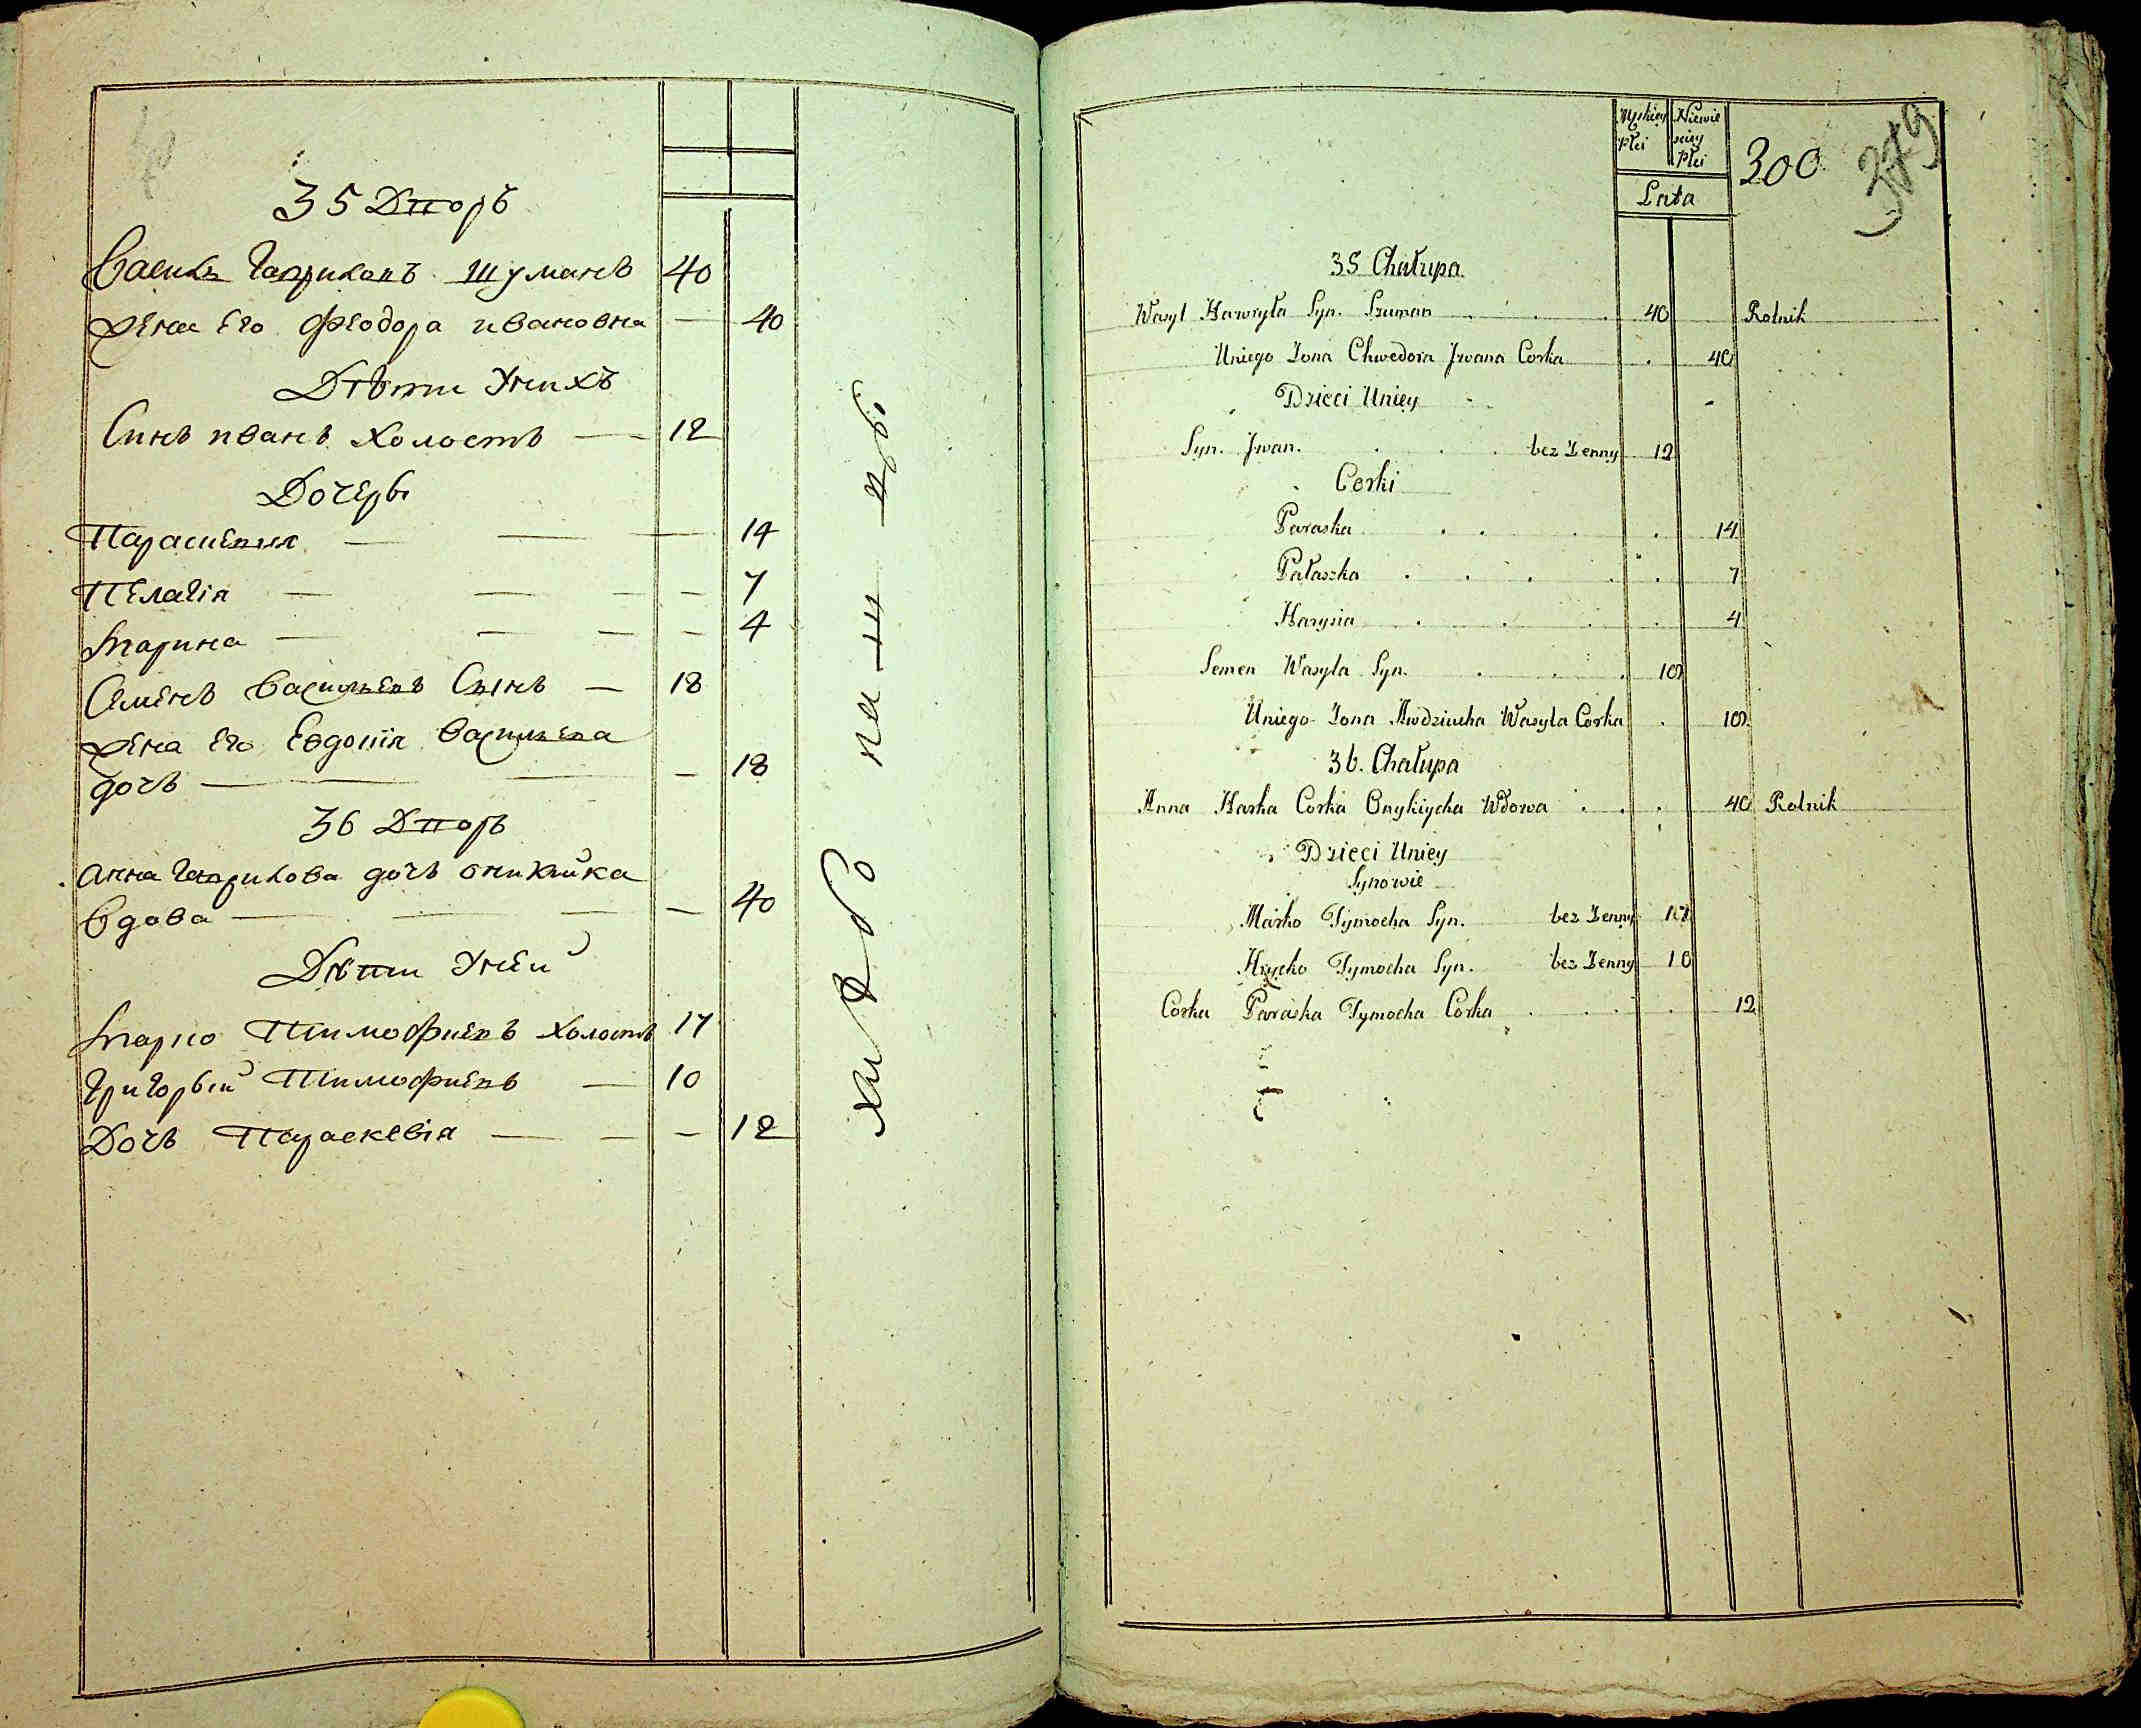 35 Дворъ
Василь Гавриловъ Шуманъ 40
Жена Его Феодора ивановна — 40
Дѣти Унихъ
Синъ иванъ Холостъ — 12
Дочеры
Параскевия — — — 14
Пелагія — — — 7
Марина — — — — 4
Семенъ Васильевъ Сынъ — 18
Жена Его Евдокія Васильева
дочъ — — — — 18
36 Дворъ
Анна Гаврилова дочъ оникийка
Вдова — — — — 40
Дѣти Уней
Марко Тимофиевъ холостъ 17
Григорьій Тимофиевъ — 10
Дочъ Параскевія — — — 12
Męskiey Płci
Niewieściey Płci
Lata
300
379
35 Chałupa
Wasyl Hawryła Syn. Szuman 40 Rolnik
Uniego Żona Chwedora Jwana Corka 40
Dzieci Uniey
Syn. Jwan. bez Żenny 12
Corki
Paraska 14
Pałaszka 7
Marysia 4
Semen Wasyla Syn. 18
Uniego Żona Awdziucha Wasyla Corka 18
36. Chałupa
Anna Harka Corka Onykiycha Wdowa 40 Rolnik
Dzieci Uniey
Synowie
Marko Tymocha Syn. bez Żenny 17
Hrycko Tymocha Syn. bez Żenny 10
Corka Paraska Tymocha Corka 12